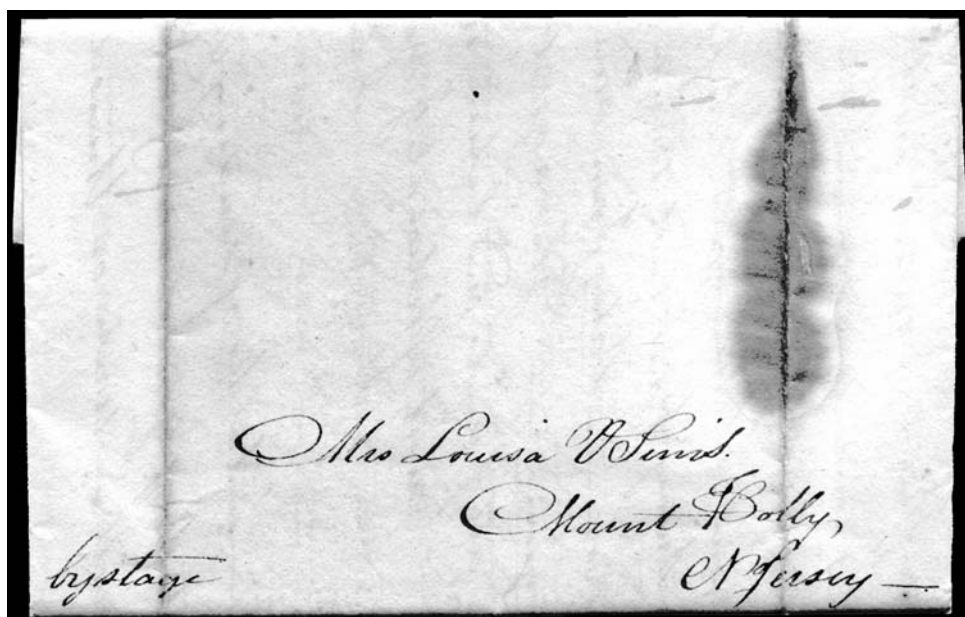 Mrs Louisa
Mount Holly,
N Jersey —
by stage